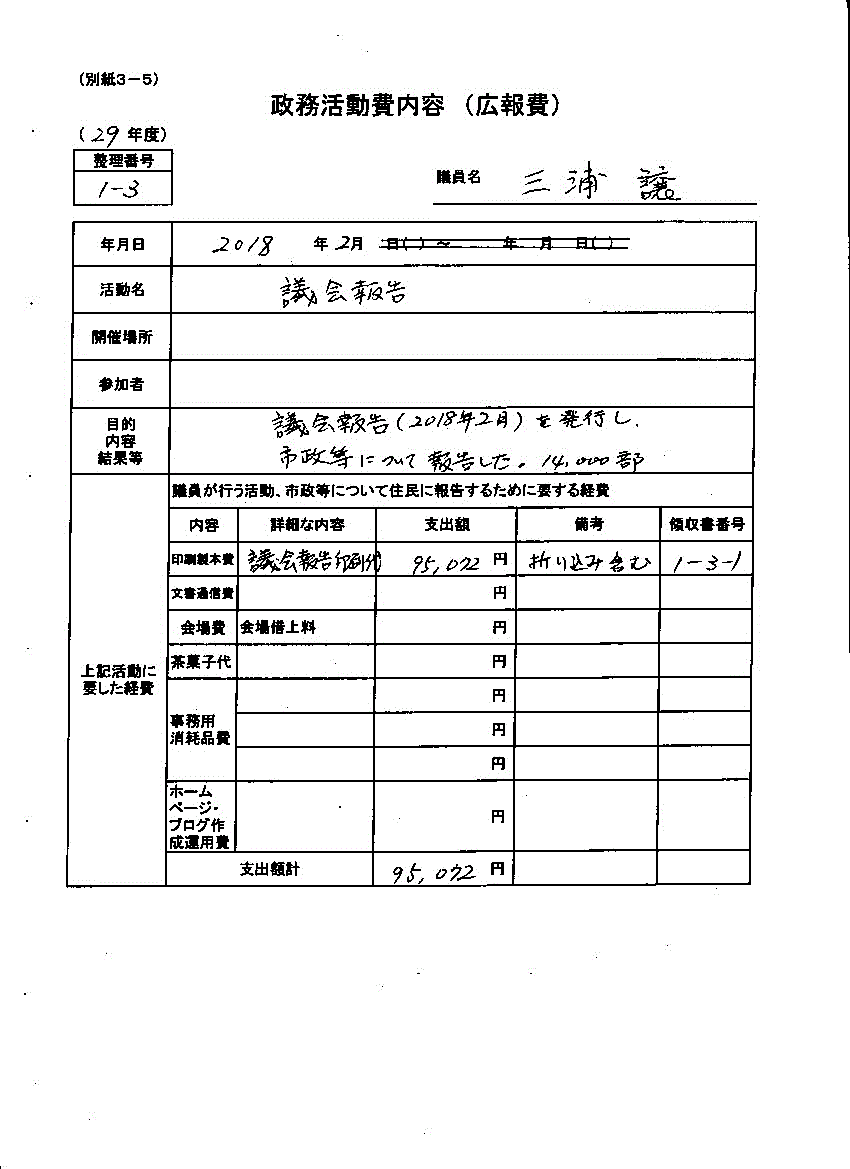 （別紙3－5）
政務活動費内容（広報費）
（29年度）
整理番号
1-3
議員名 三浦 譲
年月日 2018 年 2月 日（ ）～ 年 月 日（ ）
活動名 議会報告
開催場所
参加者
目的
内容
結果等
議会報告(2018年2月)を発行し、
市政等について報告した。14,000部
上記活動に
要した経費
議員が行う活動、市政等について住民に報告するために要する経費
内容 詳細な内容 支出額 備考 領収書番号
印刷製本費 議会報告印刷代 95,072 円 折り込み含む 1-3-1
文書通信費 円
会場費 会場借上料 円
茶菓子代 円
事務用
消耗品費
円
円
円
ホーム
ページ・
ブログ作
成運用費
円
支出額計 95,072 円